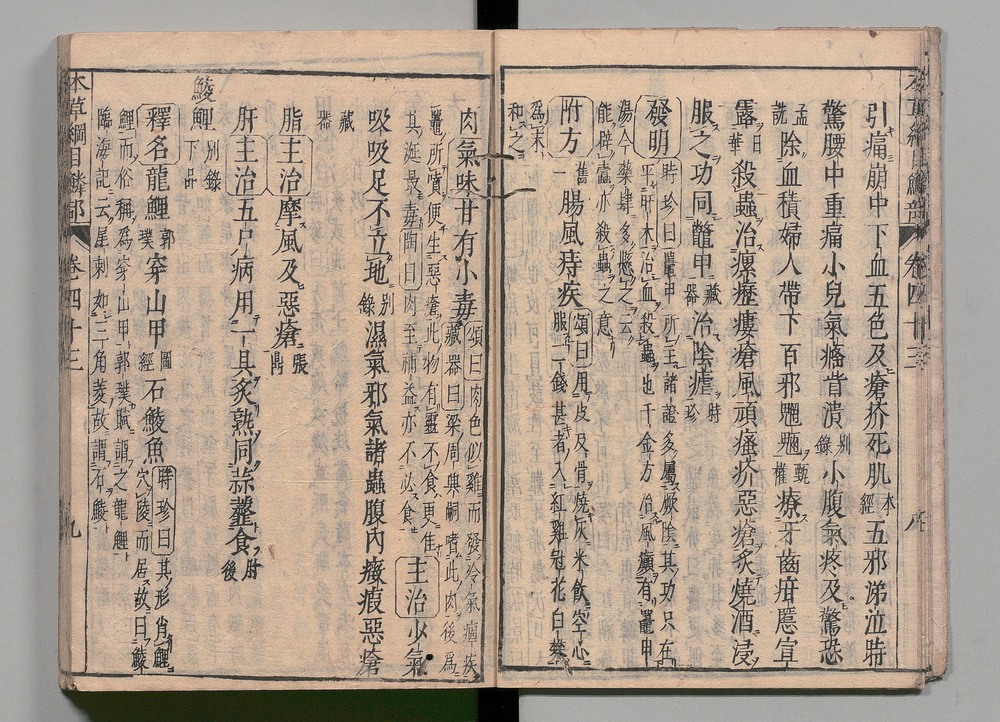 本草綱目鱗部 卷四十三 八
引痛崩中下血五色及瘡疥死肌本經五邪涕泣時
驚腰中重痛小兒氣癃眥潰別錄小腹氣疼及驚恐
孟詵除血積婦人帶下百邪魍魎甄權療牙齒疳䘌宣
露日華殺蟲治瘰癧瘻瘡風頑瘙疥惡瘡炙燒酒浸
服之功同鼈甲藏器治陰瘧時珍
發明時珍曰鼉甲所主諸證多屬厥陰其功只在
平肝木治血殺蟲也千金方治風癲有鼉甲
湯今藥肆多懸之云
能辟蠹亦殺蟲之意
附方舊一腸風痔疾頌曰用皮及骨燒灰米飲空心
服二錢甚者入紅雞冠花白礬
爲末
和之
肉氣味甘有小毒頌曰肉色似雞而發冷氣痼疾
藏器曰梁周興嗣嗜此肉後爲
鼉所噴便生惡瘡此物有靈不食更佳
其涎最毒陶曰肉至補益亦不必食主治少氣
吸吸足不立地別錄濕氣邪氣諸蟲腹內癥瘕惡瘡
藏器
脂主治摩風及惡瘡張鼎
肝主治五尸病用一具炙熟同蒜虀食肘後
鯪鯉別錄下品
釋名龍鯉郭璞穿山甲圖經石鯪魚時珍曰其形肖鯉
穴陵而居故曰鯪
鯉而俗稱爲穿山甲郭璞賦謂之龍鯉
臨海記云尾刺如三角菱故謂石鯪
本草綱目鱗部 卷四十三 九